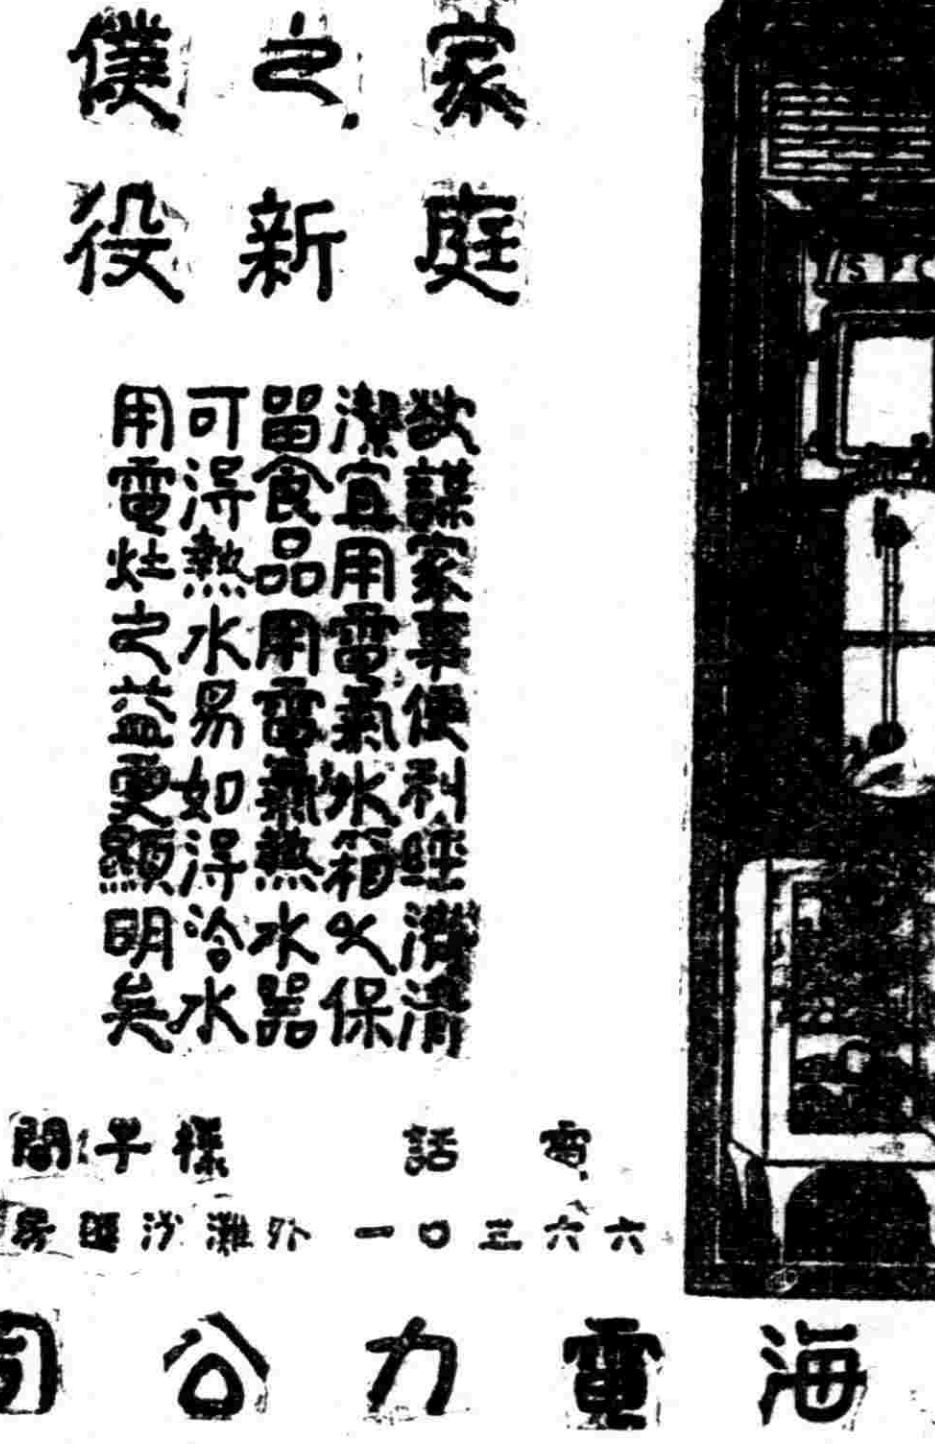 家庭
之新
僕役
欲謀家事便利經濟清
潔宜用電氣冰箱以保
留食品用電氣熱水器
可得熱水易如得冷水
用電灶之益更顯明矣
電話 樣子間
六六三〇一 外灘沙遜房
海電力公司
SPC